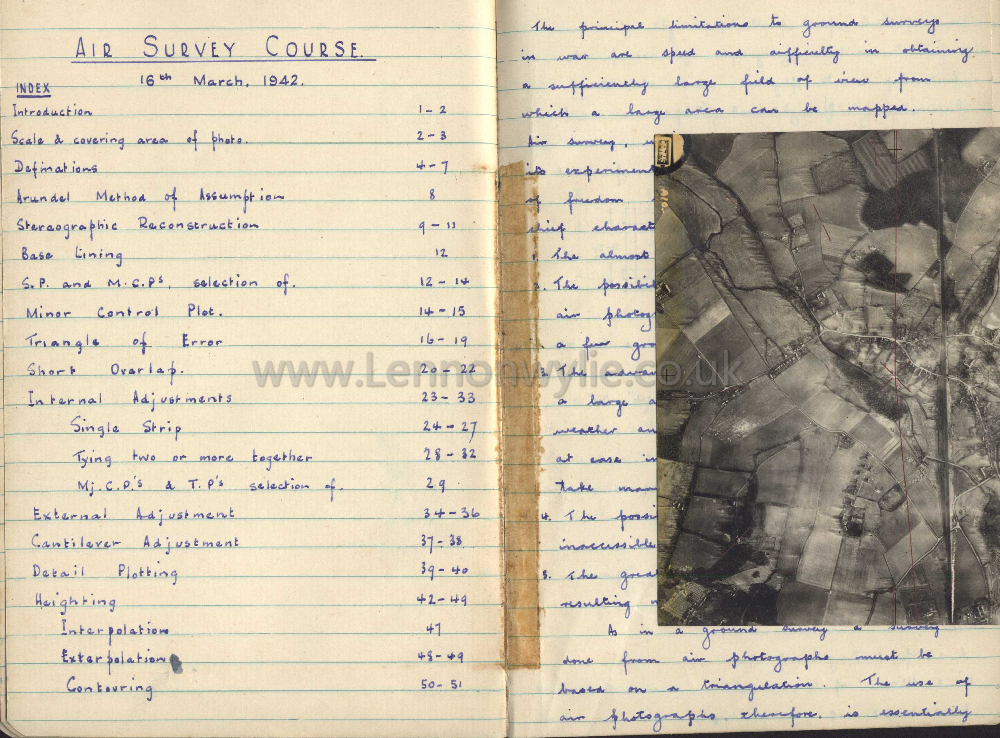 AIR SURVEY COURSE.
16th March, 1942.
INDEX
Introduction 1-2
Scale & covering area of photo. 2-3
Definations 4-7
Arundel Method of Assumption 8
Stereographic Reconstruction 9-11
Base Lining 12
S.P. and M.C.P's, selection of. 12-14
Minor Control Plot. 14-15
Triangle of Error 16-19
Short Overlap. 20-22
Internal Adjustments 23-33
Single Strip 24-27
Tying two or more together 28-32
Mj.C.P.'s & T.P's selection of. 29
External Adjustment 34-36
Cantilever Adjustment 37-38
Detail Plotting 39-40
Heighting 42-49
Interpolation 47
Exterpolation 48-49
Contouring 50-51
www.Lennonwylie.co.uk
The principal limitations to ground surveys
in war are speed and difficulty in obtaining
a sufficiently large field of view from
which a large area can be mapped.
Air survey,
its experiment
of freedom
chief charact
1. The almost
2. The possibil
air photog
a few gro
3. The advan
a large a
weather an
at ease in
take man
4. The possi
inaccessible
5. The great
resulting
As in a ground survey a survey
done from air photographs must be
based on a triangulation. The use of
air photographs, therefore, is essentially